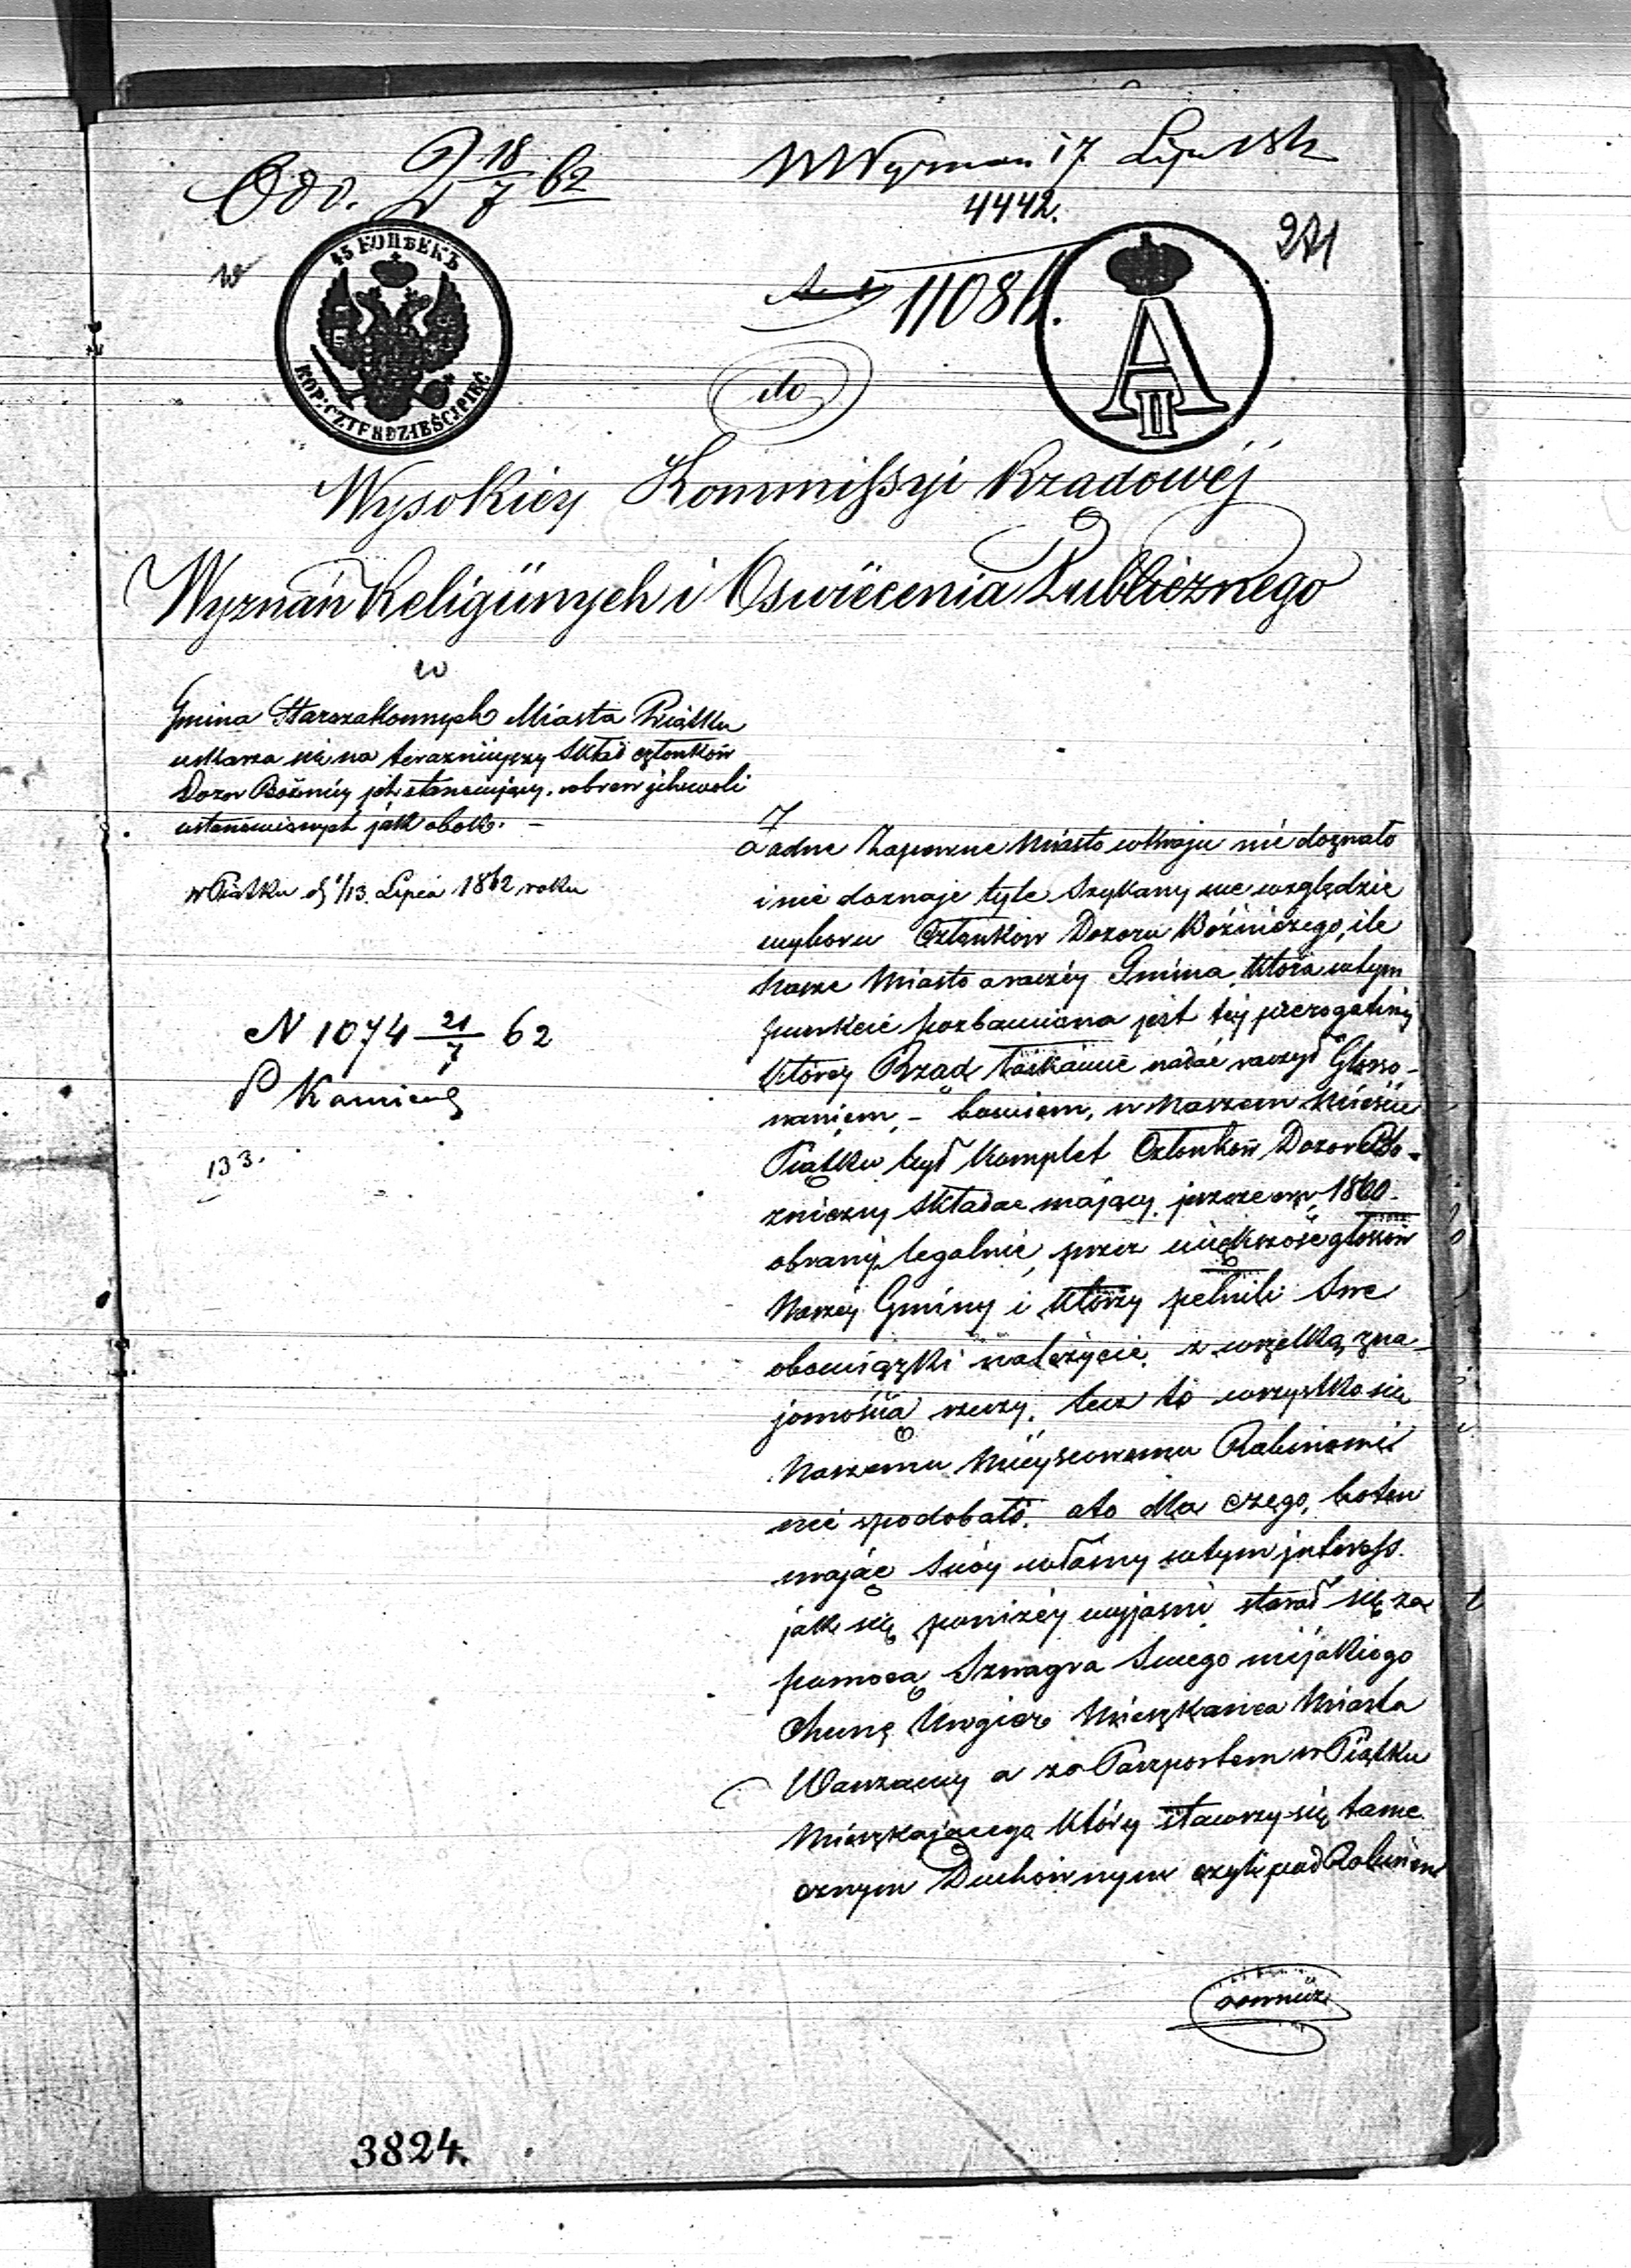 Odd. 18/7 62
W Wyznań 17 Lip 1862
4442.
271
11084.
45 КОПѢЕКЪ
KOP: CZTERDZIEŚCI PIĘĆ
A II
do
Wysokiey Kommissyi Rządowéj
Wyznań Religiinych i Oswiecenia Publicznego
w
Gmina Starozakonnych Miasta Piątku
uskarza się na terazniejszy Skład członków
Dozor Bożniczy
ustanowionych jak obok. –
w Piątku d 1/13. Lipca 1862 roku
N 1074 21/7 62
P Kamień
133.
Żadne Zapewne Miasto w kraju nie doznało
i nie doznaje tyle Szykany we względzie
wyboru Członków Dozoru Bożniczego, ile
Nasze Miasto a raczéy Gmina, która w tym
punkcie pozbawiona jest téj prerogatiwy
którey Rząd łaskawie nadać raczył Głoso-
waniem, – bowiem, w Naszem Mieście
Piątku był Komplet Członków Dozor Bo-
zniczny Składac mający, jeszcze w r. 1860.
obrany, legalnie, przez większość głosów
Naszéy Gminy i którzy pełnili Swe
obowiązki należycie, z wszelką zna-
jomością rzeczy, lecz to wszystko się
Naszemu Mieyscowemu Rabinowi
nie spodobało, a to dla czego, bo ten
mając Swóy własny w tym interess.
jak się poniżéy wyjaśni starał się za
pomocą Szwagra Swego niejakiego
Chunę Ungier Mieszkańca Miasta
Warszawy a za Paszportem w Piątku
Mieszkającego który stawszy się tame
cznym Duchównym czyli pod Rabinem
3824.